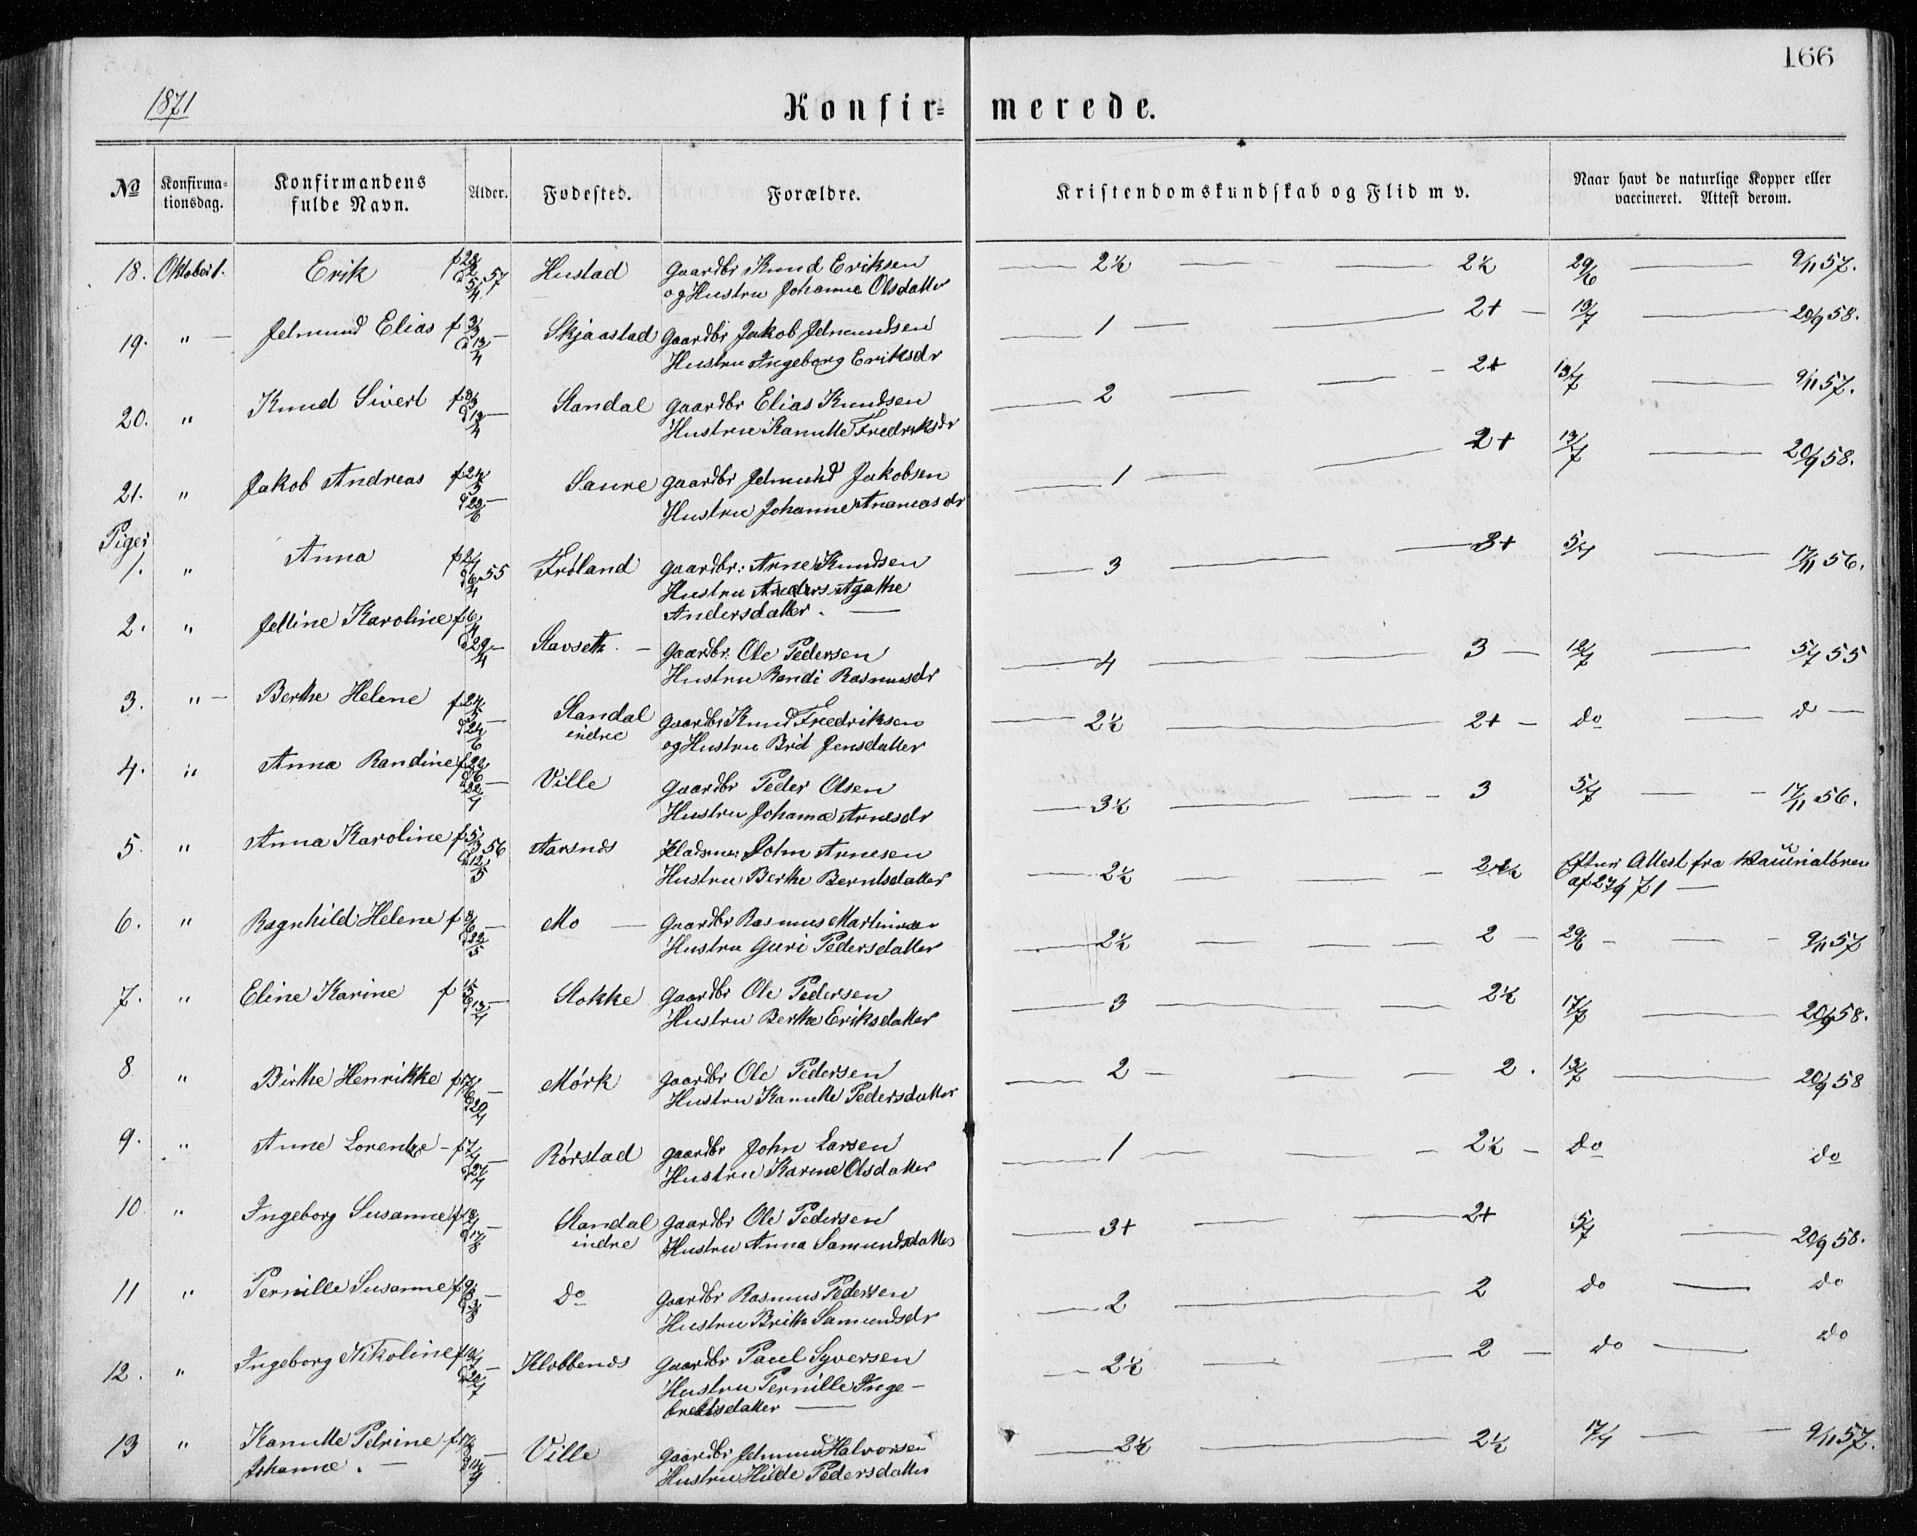 166
1871
Konfir- merede.
No Konfirma-tionsdag. Konfirmandens fulde Navn. Alder. Fødested. Forældre. Kristendomskundskab og Flid m v. Naar havt de naturlige Kopper eller vaccineret. Attest derom.
18. Oktober 1. Erik 57 Hustad Gaardbr Knud Eriksen 2½ 2½ 29/6 9/11 57.
og Hustru Johanne Olsdatter
19. " Jelmund Elias f Skjaastad Gaardbr Jakob Jelmundsen 1 2+ 13/7 20/9 58.
Hustru Ingeborg Eriksdr
20. " Knud Sivert Standal Gaardbr Elias Knudsen 2 2+ 13/7 9/11 57.
Hustru Kanutte Fredriksdr
21. " Jakob Andreas Saure Gaardbr Jelmund Jakobsen 1 2+ 13/7 20/9 58.
Hustru Johanne Ananiasdr
Piger
1. " Anna 55 Frøland Gaardbr: Arne Knudsen 3 3+ 5/7 17/11 56.
Hustru Anders Agathe
Andersdatter.
2. " Jelline Karoline Stavseth Gaardbr. Ole Pedersen 4 3 12/7 5/7 55
Hustru Randi Rasmusdr
3. " Berthe Helene Standal indre Gaardbr Knud Fredriksen 2½ 2+ do d
og Hustru Brit Jensdatter
4. " Anna Randine Ville Gaardbr Peder Olsen 3½ 3 5/7 17/11 56.
Hustru Johanna Arnesdr
5. " Anna Karoline 56 Aarsnes John Arnesen 2½ Efter Attest fra
Hustru Berthe Berntsdatter af 23/9 71
6. " Ragnhild Helene f Mo Gaardbr Rasmus Martinusen 2½ 2 29/6 9/11 57
Hustru Guri Pedersdatter
7. " Eline Karine f Stokke Gaardbr Ole Pedersen 3 2½ 17/7 20/9 58.
Hustru Berthe Eriksdatter
8 " Birthe Henrikke Mórk Gaardbr Ole Pedersen 2 2. 13/7 20/9 58
Hustru Kanutte Pedersdatter
9. " Anne Lorentze Rórstad Gaardbr John Larsen 1 2½ do do
Hustru Karine Olsdatter
10 " Ingeborg Susanne Standal indre Gaardbr Ole Pedersen 3+ 2+ 5/7 20/9 58.
Hustru Anna Samundsdatter
11 " Pernille Susanne do Gaardbr Rasmus Pedersen 2 2 do do
Hustru Brith Samundsdr
12. " Ingeborg Nikoline Klobbenes Gaardbr Paul Syversen 2½ 2 do do
Hustru Pernille Inge-
bretsdatter
13 " Kanutte Petrine Ville Gaardbr Jelmund Halvorsen 2½ 2½ 17/7 9/11 57.
Johanne. Hustru Hilde Pedersdatter